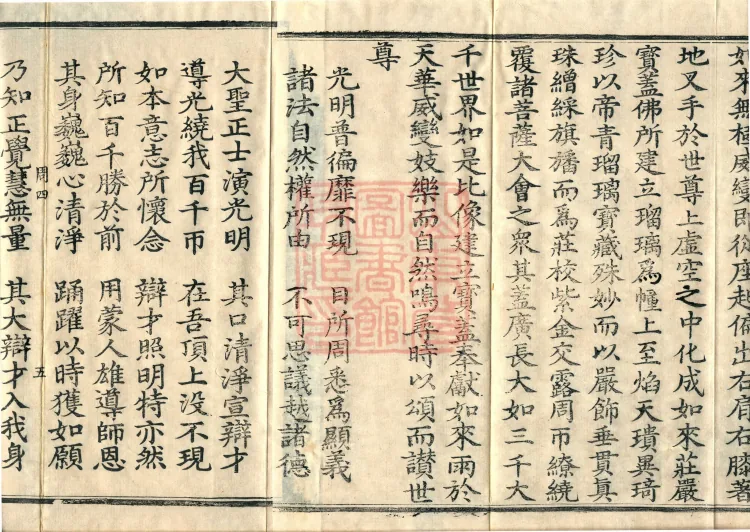 如來無極威變即從座起偏出右肩右膝著
地叉手於世尊上虛空之中化成如來莊嚴
寶蓋佛所建立瑠璃為幢上至焰天瓌異琦
珍以帝青瑠璃寶藏殊妙而以嚴飾垂貫真
珠繒綵旗旛而為莊校紫金交露周帀繚繞
覆諸菩薩大會之眾其蓋廣長大如三千大
千世界如是比像建立寶蓋奉獻如來雨於
天華威變妓樂而自然鳴尋時以頌而讚世
尊
光明普徧靡不現 目所周悉為顯義
諸法自然權所由 不可思議越諸德
大聖正士演光明 其口清淨宣辯才
導光繞我百千帀 在吾頂上没不現
如本意志所懷念 辯才照明特亦然
所知百千勝於前 用蒙人雄導師恩
其身巍巍心清淨 踊躍以時獲如願
周四 五
乃知正覺慧無量 其大辯才入我身